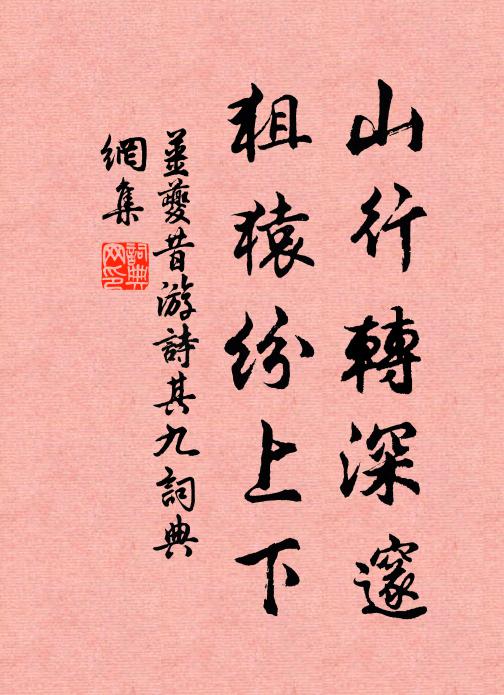 山行轉深邃
狙猿紛上下
姜夔昔游詩其九詞典
網集
詞典
网印